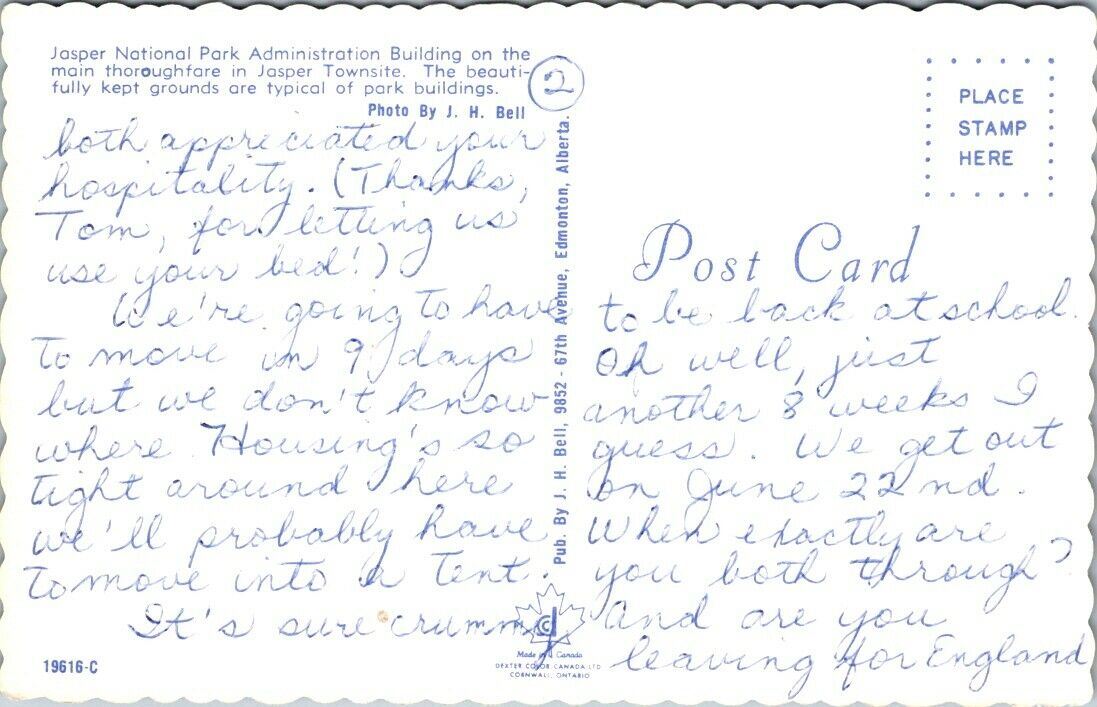 Jasper National Park Administration Building on the
main thoroughfare in Jasper Townsite. The beauti-
fully kept grounds are typical of park buildings.
Photo By J. H. Bell
2
both appreciated your
hospitality. (Thanks,
Tom, for letting us
use your bed!)
We're going to have
to move in 9 days
but we don't know
where. Housing's so
tight around here
we'll probably have
to move into a tent.
It's sure crummy
19616-C
Pub. By J. H. Bell, 9852 - 67th Avenue, Edmonton, Alberta.
Made in Canada
DEXTER COLOR CANADA LTD
CORNWALL, ONTARIO
PLACE
STAMP
HERE
Post Card
to be back at school.
Oh well, just
another 8 weeks I
guess. We get out
on June 22nd.
When exactly are
you both through?
And are you
leaving for England